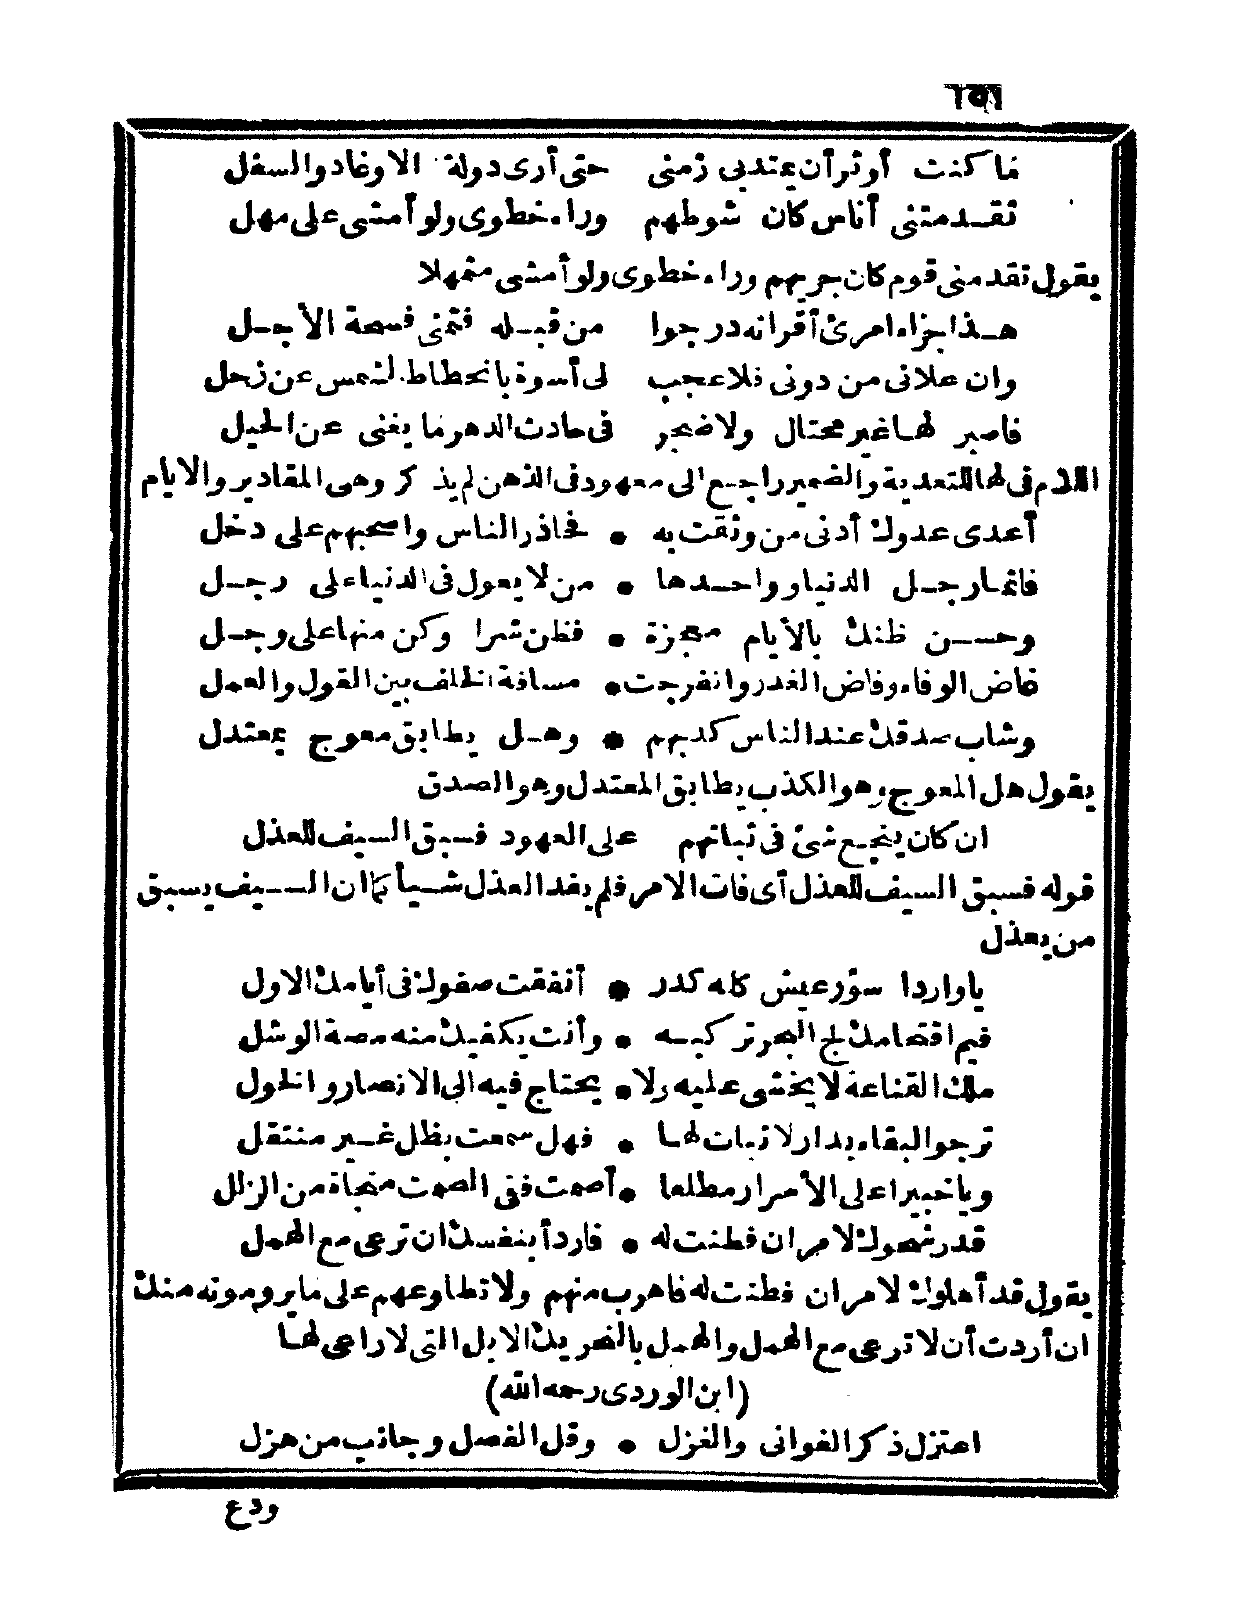 ١٥١
ما كنت أوثر أن يمتد بى زمنى حتى أرى دولة الاوغاد والسفل
تقدمتنى أناس كان شوطهم وراء خطوى ولو أمشى على مهل
يقول تقدمنى قوم كان جريهم وراء خطوى ولو أمشى متمهلا
هذا جزاء امرئ أقرانه درجوا من قبله فتمنى فسحة الأجل
وان علانى من دونى فلا عجب لى أسوة بانحطاط الشمس عن زحل
فاصبر لها غير محتال ولا ضجر فى حادث الدهر ما يغنى عن الحيل
اللام فى لها للتعدية والضمير راجع الى معهود فى الذهن لم يذكر وهى المقادير والايام
أعدى عدوك أدنى من وثقت به • فحاذر الناس واصحبهم على دخل
فانما رجل الدنيا وواحدها • من لا يعول فى الدنيا على رجل
وحسن ظنك بالأيام معجزة • فظن شرا وكن منها على وجل
غاض الوفاء وفاض الغدر وانفرجت • مسافة الخلف بين القول والعمل
وشاب صدقك عند الناس كذبهم • وهل يطابق معوج بمعتدل
يقول هل المعوج وهو الكذب يطابق المعتدل وهو الصدق
ان كان ينجع شئ فى ثباتهم على العهود فسبق السيف للعذل
قوله فسبق السيف للعذل أى فات الامر فلم يفد العذل شيأ كما ان السيف يسبق
من يعذل
ياواردا سؤر عيش كله كدر • أنفقت صفوك فى أيامك الاول
فيم اقتحامك لج البحر تركبه • وأنت يكفيك منه مصة الوشل
ملك القناعة لا يخشى عليه ولا • يحتاج فيه الى الانصار والخول
ترجو البقاء بدار لا ثبات لها • فهل سمعت بظل غير منتقل
وياخبيرا على الأسرار مطلعا • أصمت ففى الصمت منجاة من الزلل
قد رشحوك لامر ان فطنت له • فاربأ بنفسك ان ترعى مع الهمل
يقول قد أهلوك لامر ان فطنت له فاهرب منهم ولا تطاوعهم على ما يرومونه منك
ان أردت أن لا ترعى مع الهمل والهمل بالتحريك الابل التى لا راعى لها
(ابن الوردى رحمه الله)
اعتزل ذكر الغوانى والغزل • وقل الفصل وجانب من هزل
ودع